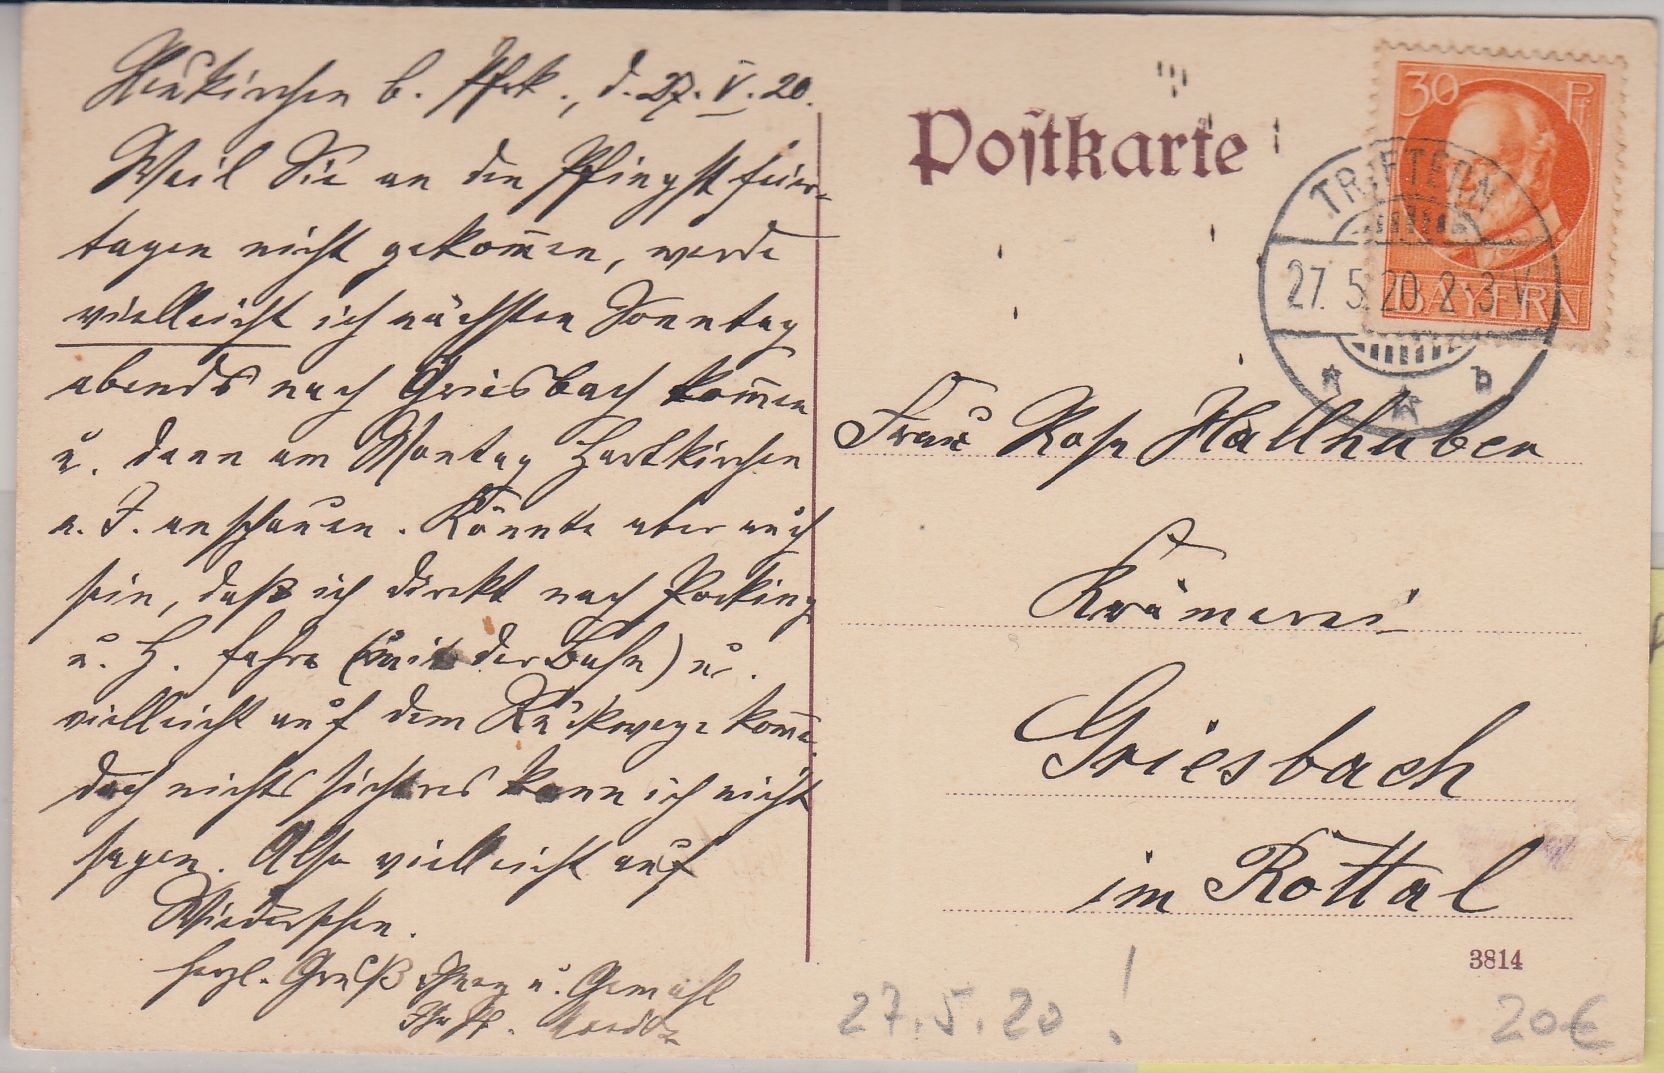 Neukirchen b. Pfrk., d. 27. V. 20.
Weil Sie an den Pfingstfeier-
tagen nicht gekom̅en, werde
vielleicht ich nächsten Sonntag
abends nach Griesbach kom̅en
u. dann am Montag Hartkirchen
a. J. anschauen. Könnte aber auch
sein, daß ich direkt nach Pocking
u. H. fahre (mit der Bahn) u.
vielleicht auf dem Rückwege kom̅e.
doch nichts sicheres kann ich nicht
sagen. Also vielleicht auf
Wiedersehen.
Herzl. Gruß Ihnen u. Gemahl
Ihr Pf.
Postkarte
30 Pf
BAYERN
TRIFTERN
27. 5. 20. 2-3 V
* * b
Frau Rosa Hallhuber
Krämerei
Griesbach
im Rottal
3814
27.5.20 !
20€